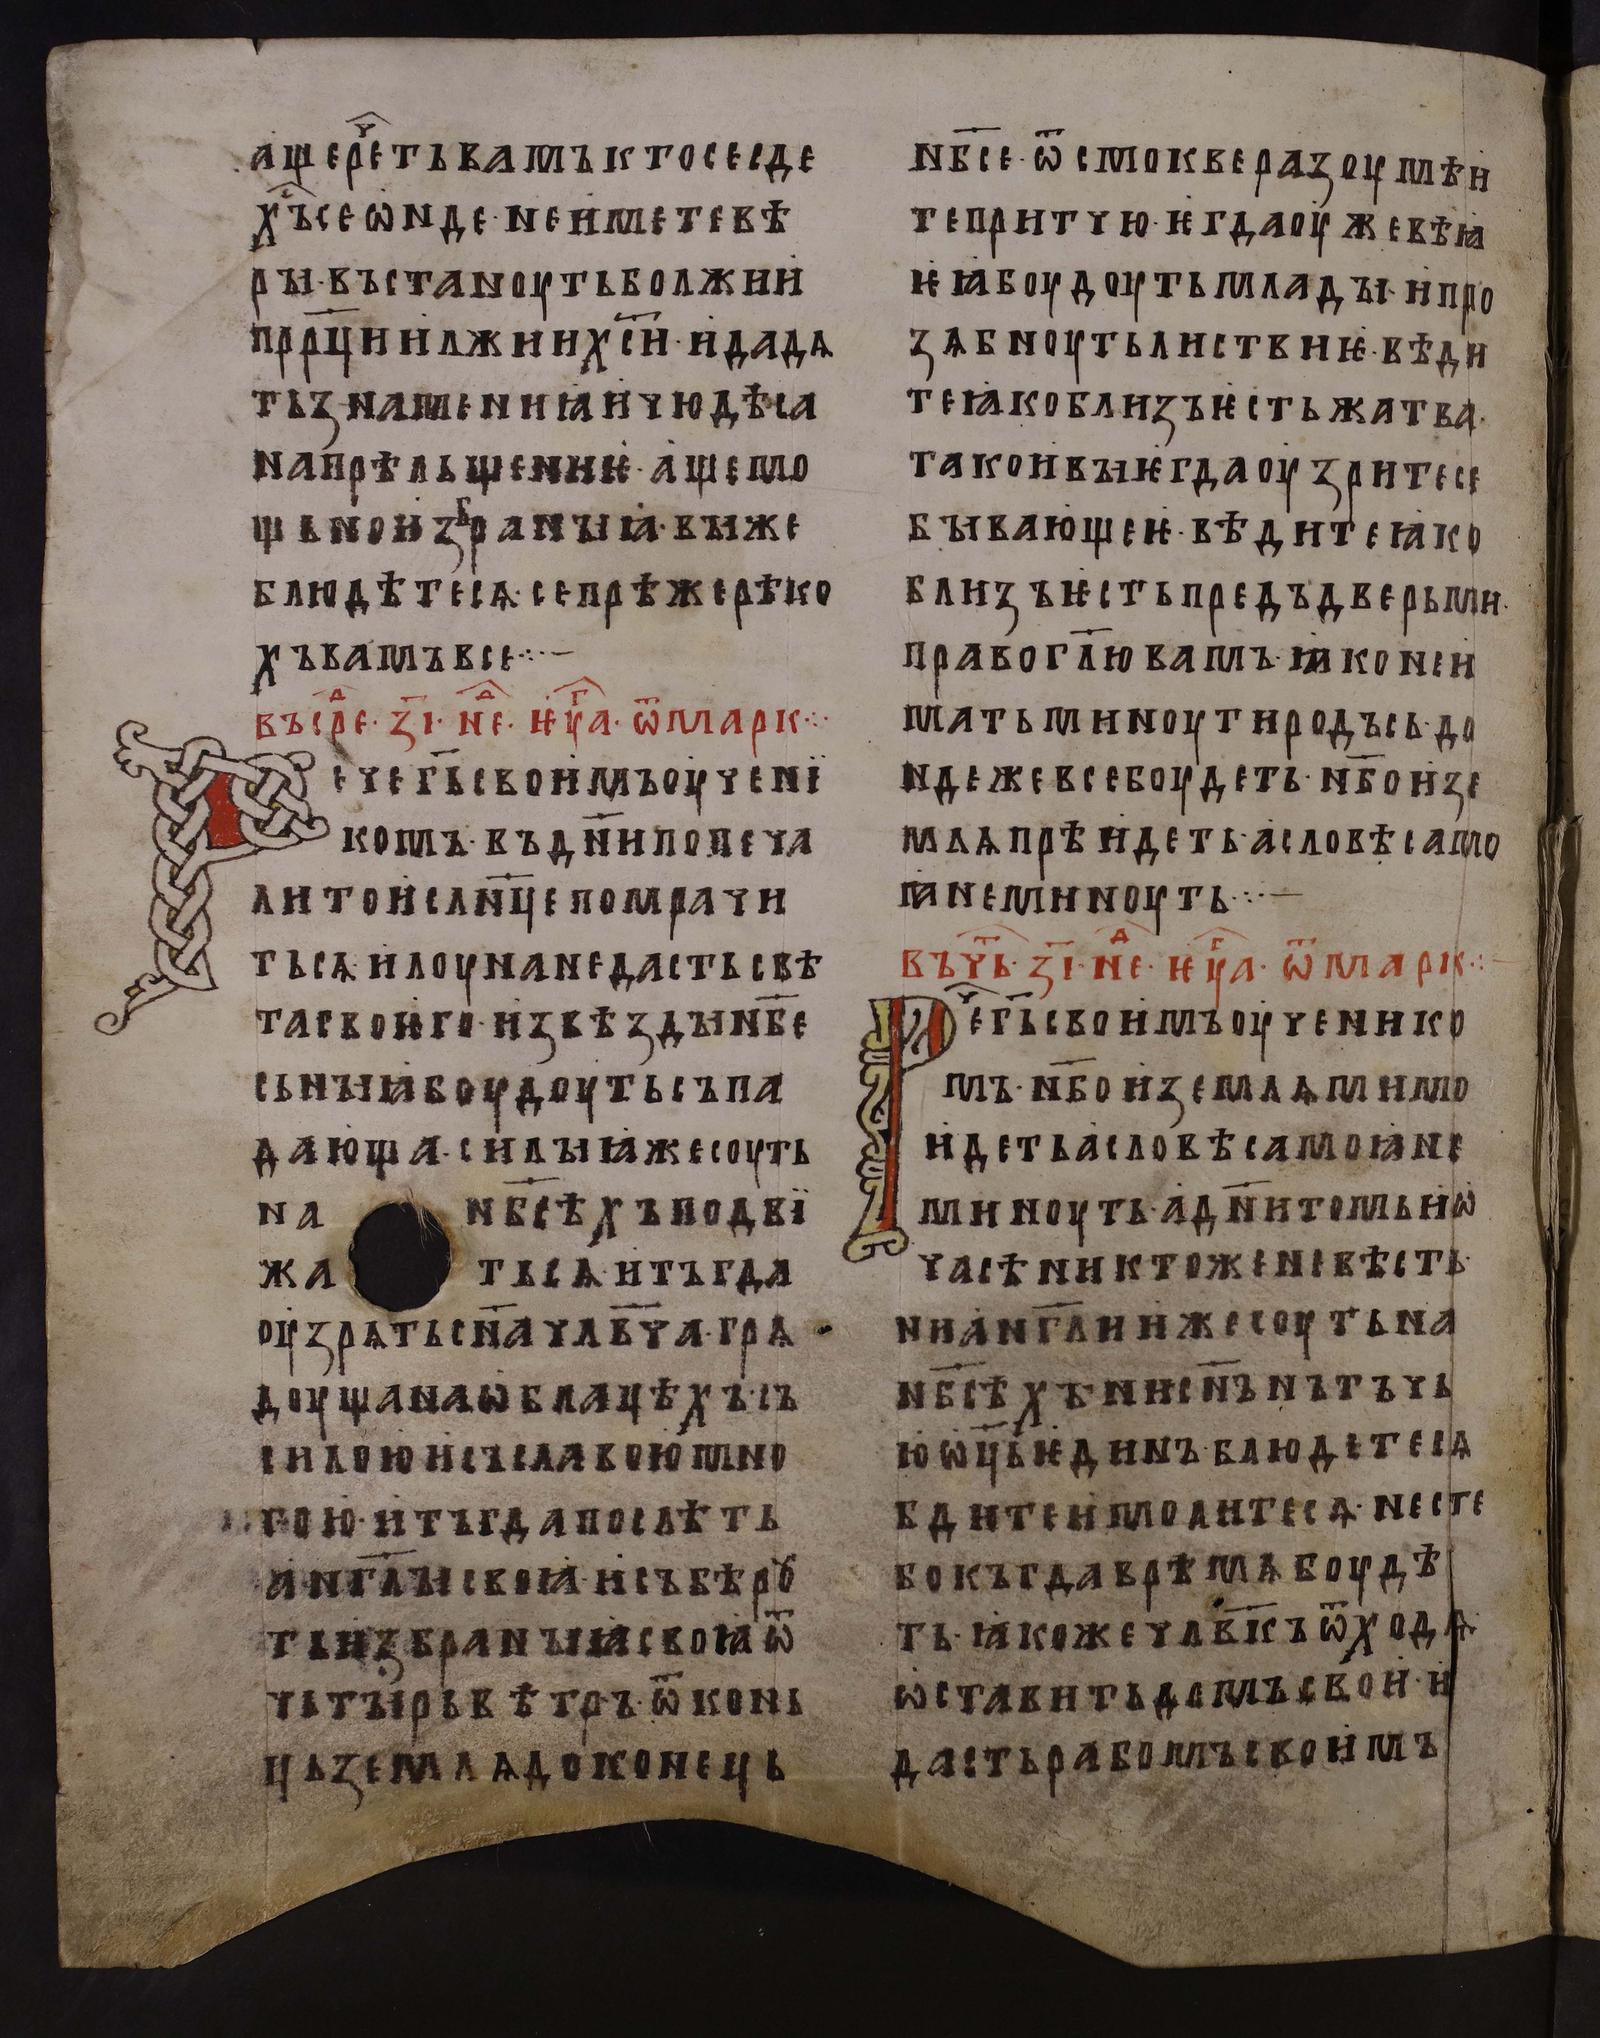 аще рⷱ҇еть вамъ кто се сде
х҇ъ се ѡнде· не имете вѣ
ры· въстаноуть бо лжии
прр҃ци и лжии х҃си· и дадѧ
ть знамениꙗ и чюдѣса
на прѣльщениѥ· аще мо
щьно и збⷬ҇аныꙗ· вы же
блюдѣтесѧ· се прѣже рѣко
хъ вамъ все·:·—
въ срⷣе· з҃і· нⷣе· ѥуⷢ҇а· ѿ марк·:·
Рече г҃ь своимъ оученї
комъ· въ дн҃и по печа
ли тои сл҃нце помрачи
тьсѧ и лоуна не дасть свѣ
та своѥго· и звѣзды нб҃е
сьныꙗ боудоуть съпа
дающа· силы ꙗже соуть
на нб҃сѣхъ подвї
жатьсѧ· и тъгда
оузрѧть сн҃а чл҃вча· грѧ
доуща на ѡблацѣхъ· съ
силою и съ славою мно
гою· и тъгда послѣть
ан҃глы своꙗ· и събѣрꙋ
ть избраныꙗ своꙗ ѿ
чьтырь вѣтръ· ѿ конь
ць землѧ до конець
нб҃се· ѿ смокве разоумѣи
те притчю· ѥгда оуже вѣꙗ
ѥꙗ боудоуть млады· и про
зѧбноуть листвиѥ· вѣди
те ꙗко близъ ѥсть жатва·
тако и вы ѥгда оузрите се
бывающеѥ· вѣдите ꙗко
близъ ѥсть предъ дверьми·
право гл҃ю вамъ· ꙗко не и
мать миноути родъ сь· до
ндеже все боудеть· нб҃о и зе
млѧ прѣидеть· а словѣса мо
ꙗ не миноуть·:·—
въ чⷮь· з҃і· нⷣе· ѥуⷢ҇а· ѿ марк·:·
Рⷱ҇е г҃ь своимъ оученико
мъ· нб҃о и землѧ мимо
идеть а словѣса моꙗ не
миноуть· а дн҃и томь и ѡ
часѣ никтоже не вѣсть·
ни ан҃гли иже соуть на
нб҃сѣхъ· ни сн҃ъ нъ тъчь
ю ѡц҃ь ѥдинъ· блюдетесѧ
бдите и молитесѧ· не сте
бо къгда врѣмѧ боудѣ
ть· ꙗкоже чл҃вкъ ѿходѧ·
ѡставить домъ свои· и
дасть рабомъ своимъ